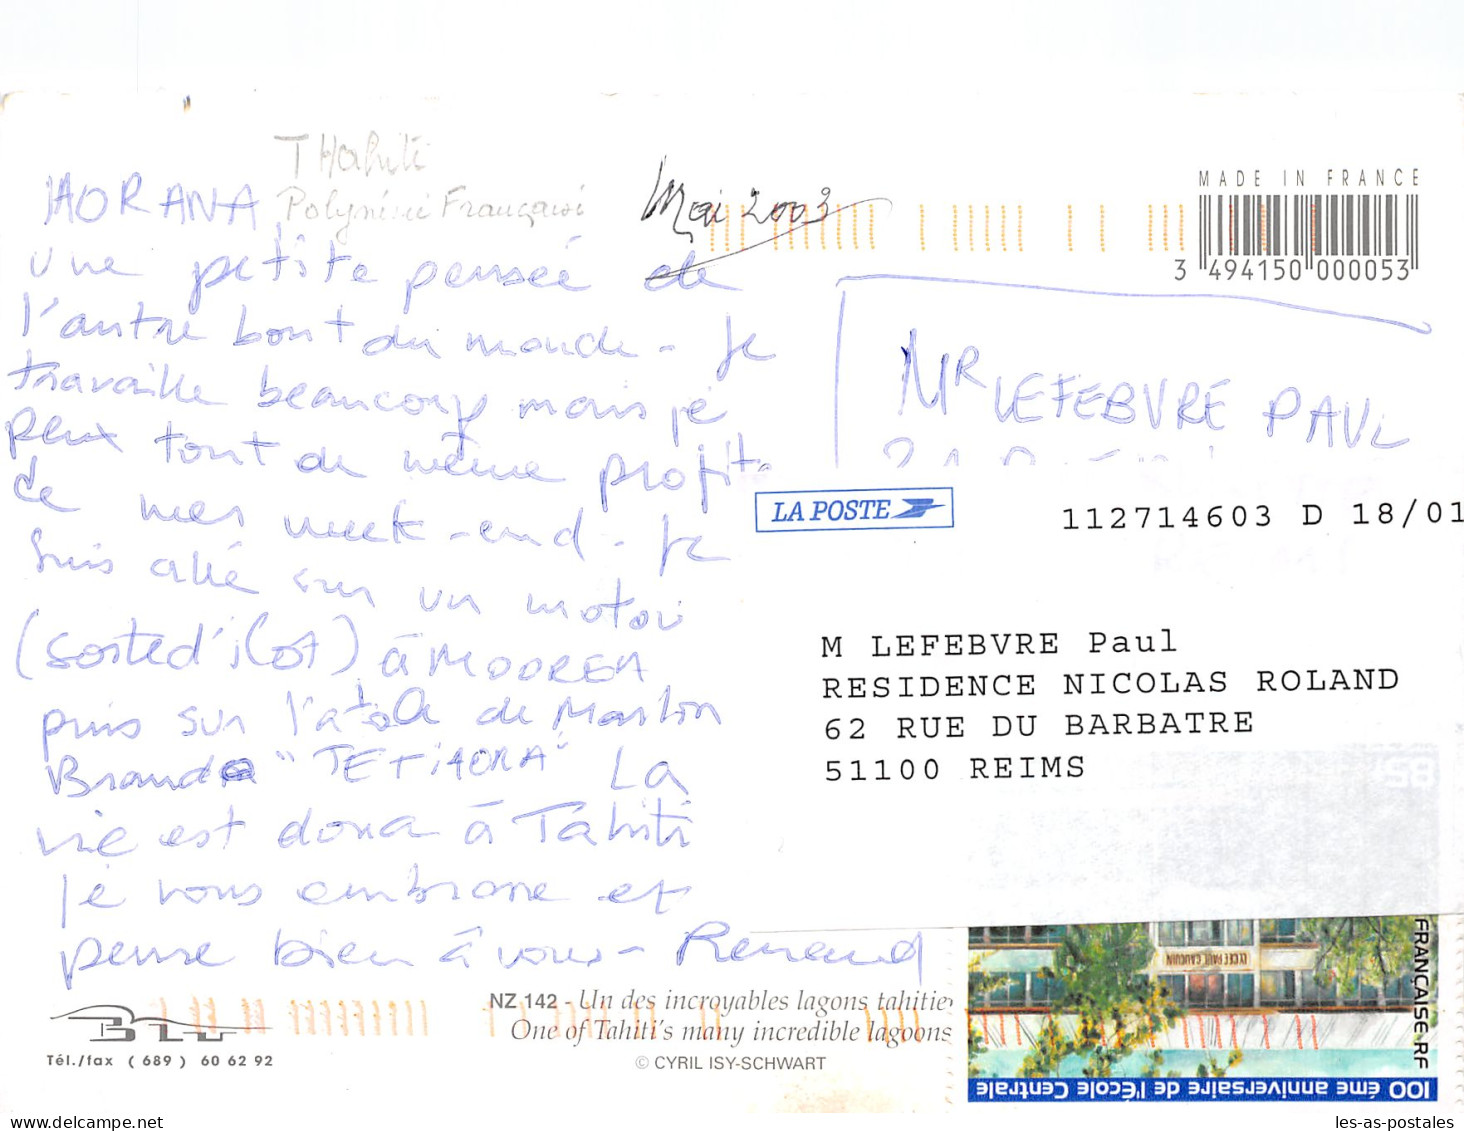 THahiti
Polynésie Françaisi
Mai 2003
IAORANA
une petite pensée de
l'autre bout du monde - Je
travaille beaucoup mais je
peux tout de même profite
de mes week-end - Je
suis allé sur un motou
(sorte d'ilot) à MOOREA
puis sur l'atoll de Marlon
Brando "TETIAORA" La
vie est douce à Tahiti
Je vous embrasse et
pense bien à vous - Renaud
MADE IN FRANCE
3 494150 000053
Mr LEFEBVRE PAUL
LA POSTE
112714603 D 18/01
M LEFEBVRE Paul
RESIDENCE NICOLAS ROLAND
62 RUE DU BARBATRE
51100 REIMS
BLL
Tél./fax (689) 60 62 92
NZ 142 - Un des incroyables lagons tahitie
One of Tahiti's many incredible lagoons
© CYRIL ISY-SCHWART
LYCEE PAUL GAUGUIN
FRANÇAISE-RF
100 éme anniversaire de l'École Centrale
les-as-postales.com